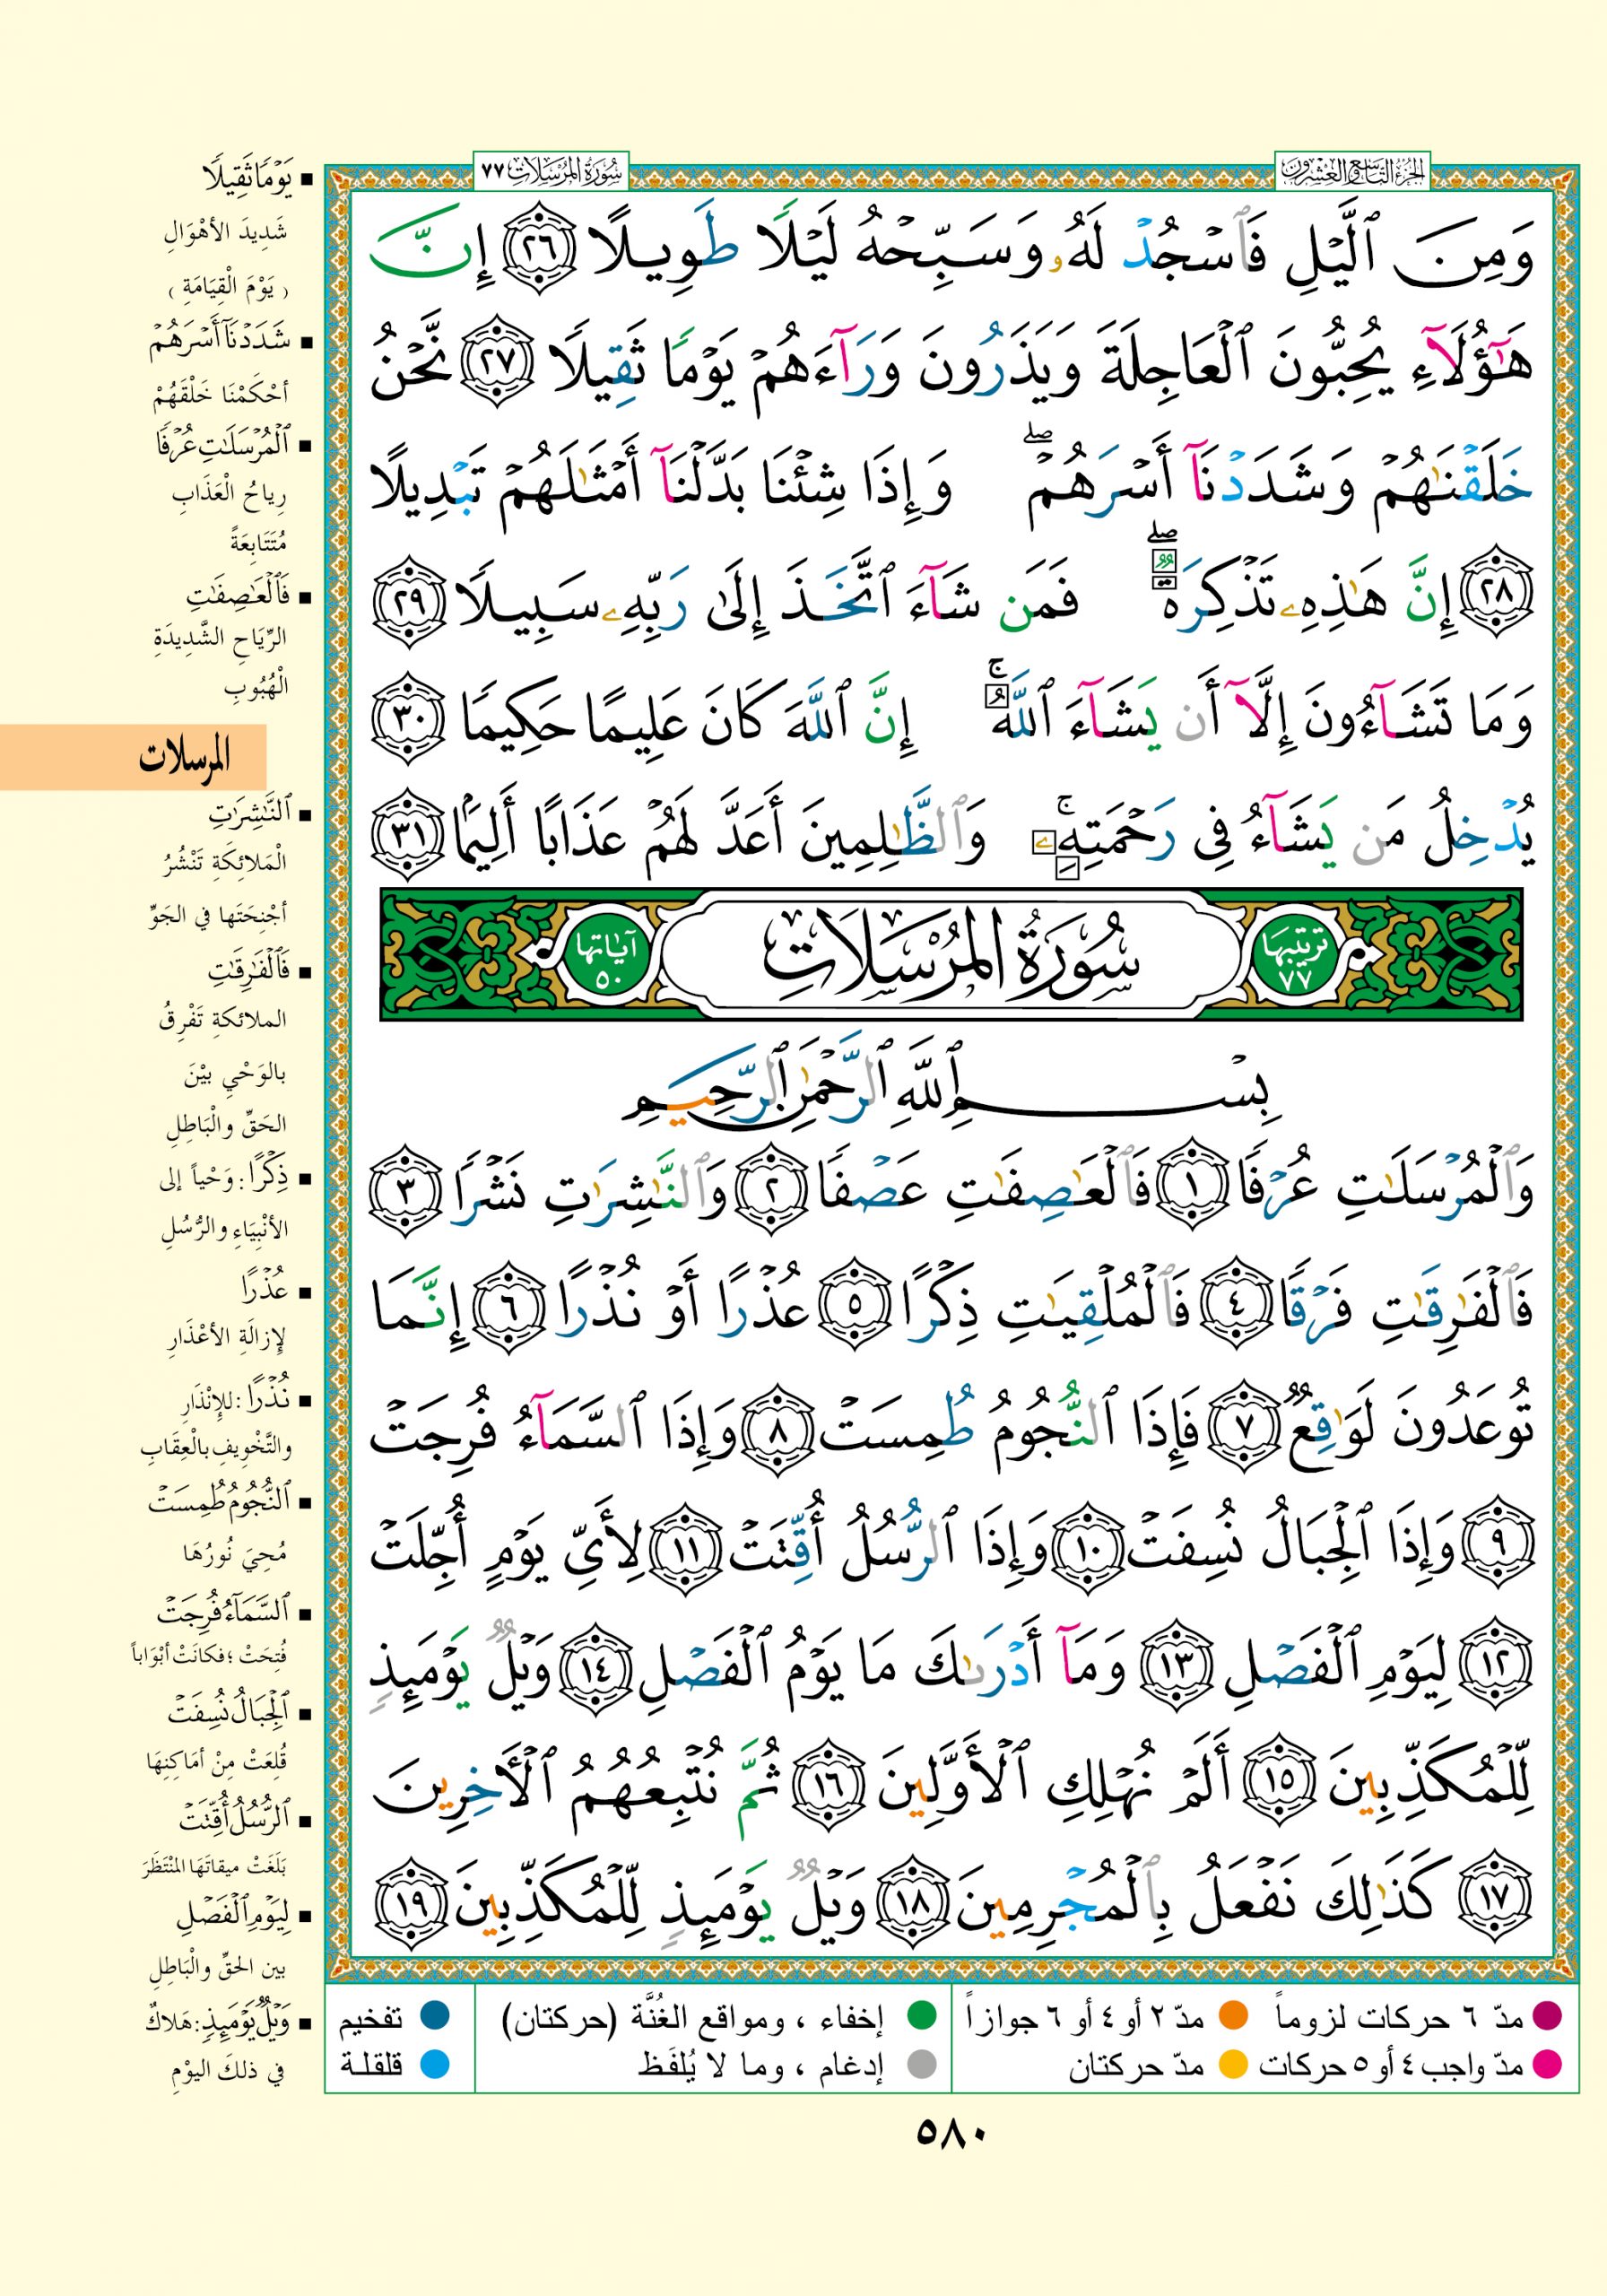 الجزء التاسع والعشرون
سورة المرسلات ٧٧
وَمِنَ ٱلَّيْلِ فَٱسْجُدْ لَهُۥ وَسَبِّحْهُ لَيْلًا طَوِيلًا ٢٦ إِنَّ
هَٰٓؤُلَآءِ يُحِبُّونَ ٱلْعَاجِلَةَ وَيَذَرُونَ وَرَآءَهُمْ يَوْمًا ثَقِيلًا ٢٧ نَّحْنُ
خَلَقْنَٰهُمْ وَشَدَدْنَآ أَسْرَهُمْ ۖ وَإِذَا شِئْنَا بَدَّلْنَآ أَمْثَٰلَهُمْ تَبْدِيلًا
٢٨ إِنَّ هَٰذِهِۦ تَذْكِرَةٌ ۖ فَمَن شَآءَ ٱتَّخَذَ إِلَىٰ رَبِّهِۦ سَبِيلًا ٢٩
وَمَا تَشَآءُونَ إِلَّآ أَن يَشَآءَ ٱللَّهُ ۚ إِنَّ ٱللَّهَ كَانَ عَلِيمًا حَكِيمًا ٣٠
يُدْخِلُ مَن يَشَآءُ فِى رَحْمَتِهِۦ ۚ وَٱلظَّٰلِمِينَ أَعَدَّ لَهُمْ عَذَابًا أَلِيمًۢا ٣١
ترتيبها ٧٧ سُورَةُ المُرْسَلَاتِ آياتها ٥٠
بِسْمِ ٱللَّهِ ٱلرَّحْمَٰنِ ٱلرَّحِيمِ
وَٱلْمُرْسَلَٰتِ عُرْفًا ١ فَٱلْعَٰصِفَٰتِ عَصْفًا ٢ وَٱلنَّٰشِرَٰتِ نَشْرًا ٣
فَٱلْفَٰرِقَٰتِ فَرْقًا ٤ فَٱلْمُلْقِيَٰتِ ذِكْرًا ٥ عُذْرًا أَوْ نُذْرًا ٦ إِنَّمَا
تُوعَدُونَ لَوَٰقِعٌ ٧ فَإِذَا ٱلنُّجُومُ طُمِسَتْ ٨ وَإِذَا ٱلسَّمَآءُ فُرِجَتْ
٩ وَإِذَا ٱلْجِبَالُ نُسِفَتْ ١٠ وَإِذَا ٱلرُّسُلُ أُقِّتَتْ ١١ لِأَىِّ يَوْمٍ أُجِّلَتْ
١٢ لِيَوْمِ ٱلْفَصْلِ ١٣ وَمَآ أَدْرَىٰكَ مَا يَوْمُ ٱلْفَصْلِ ١٤ وَيْلٌ يَوْمَئِذٍ
لِّلْمُكَذِّبِينَ ١٥ أَلَمْ نُهْلِكِ ٱلْأَوَّلِينَ ١٦ ثُمَّ نُتْبِعُهُمُ ٱلْءَاخِرِينَ
١٧ كَذَٰلِكَ نَفْعَلُ بِٱلْمُجْرِمِينَ ١٨ وَيْلٌ يَوْمَئِذٍ لِّلْمُكَذِّبِينَ ١٩
يَوْمًا ثَقِيلًا
شَدِيدَ الأهْوَالِ
( يَوْمَ الْقِيَامَةِ )
شَدَدْنَآ أَسْرَهُمْ
أحْكَمْنَا خَلْقَهُمْ
ٱلْمُرْسَلَٰتِ عُرْفًا
رِياحُ الْعَذَابِ
مُتَتَابِعَةً
فَٱلْعَٰصِفَٰتِ
الرِّيَاحِ الشَّدِيدَةِ
الْهُبُوبِ
المرسلات
ٱلنَّٰشِرَٰتِ
الْمَلائِكَةِ تَنْشُرُ
أجْنِحَتَها في الجَوِّ
فَٱلْفَٰرِقَٰتِ
الملائكةِ تَفْرِقُ
بالوَحْيِ بيْنَ
الحَقِّ والْبَاطِلِ
ذِكْرًا : وَحْياً إلى
الأنْبِيَاءِ والرُّسُلِ
عُذْرًا
لإزالَةِ الأعْذَارِ
نُذْرًا : للإنْذَارِ
والتَّخْوِيفِ بالْعِقَابِ
ٱلنُّجُومُ طُمِسَتْ
مُحِيَ نُورُهَا
ٱلسَّمَآءُ فُرِجَتْ
فُتِحَتْ ؛ فكانَتْ أبْوَاباً
ٱلْجِبَالُ نُسِفَتْ
قُلِعَتْ مِنْ أمَاكِنِهَا
ٱلرُّسُلُ أُقِّتَتْ
بَلَغَتْ ميقاتَهَا المُنْتَظَرَ
لِيَوْمِ ٱلْفَصْلِ
بين الحَقِّ والْبَاطِلِ
وَيْلٌ يَوْمَئِذٍ : هَلاكٌ
في ذلكَ اليوْمِ
مدّ ٦ حركات لزوماً مدّ ٢ أو ٤ أو ٦ جوازاً إخفاء ، ومواقع الغُنَّة (حركتان) تفخيم
مدّ واجب ٤ أو ٥ حركات مدّ حركتان إدغام ، وما لا يُلفَظ قلقلة
٥٨٠